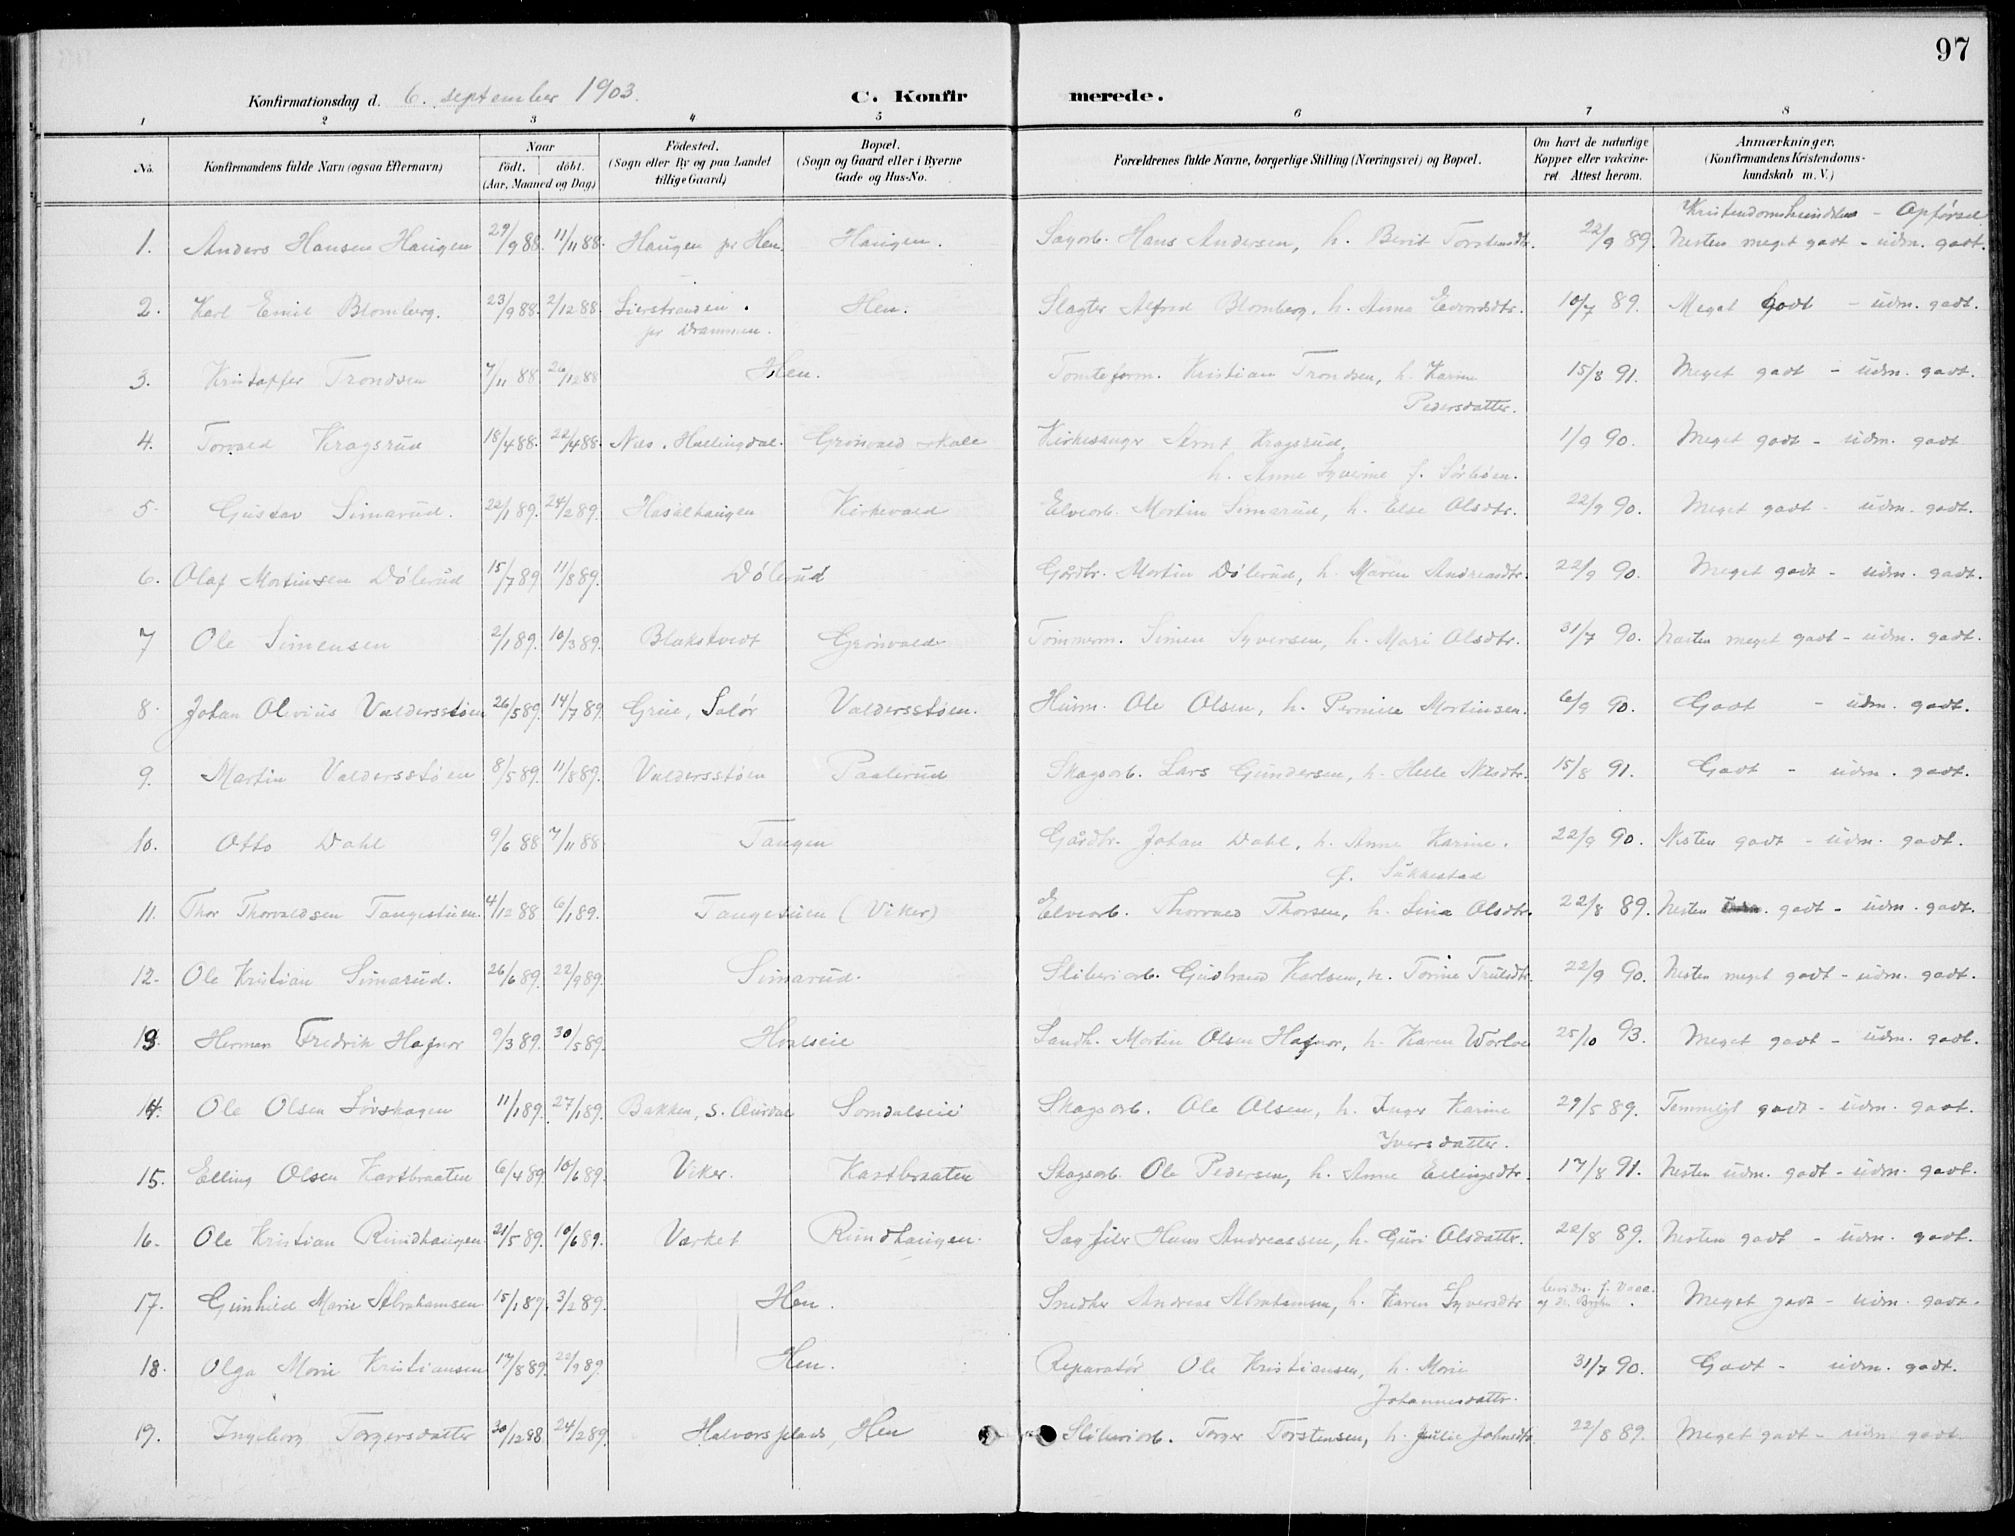 97
Konfirmationsdag d. 6. september 1903.
C. Konfirmerede.
1 2 3 4 5 6 7 8
No. Konfirmandens fulde Navn (ogsaa Efternavn)
Naar
født. døbt.
(Aar, Maaned og Dag)
Fødested.
(Sogn eller By og paa Landet
tillige Gaard)
Bopæl.
(Sogn og Gaard eller i Byerne
Gade og Hus-No.
Forældrenes fulde Navne, borgerlige Stilling (Næringsvei) og Bopæl.
Om havt de naturlige
Kopper eller vakcine-
ret Attest herom.
Anmærkninger.
(Konfirmandens Kristendoms-
kundskab m. V.)
Kristendomskundskab - Opførsel
1. Anders Hansen Haugen 29/9 88. 11/11 88. Haugen pr Hen. Haugen. Sagarb. Hans Andersen, h. Berit Torstensdtr. 22/9 89. Nesten meget godt - udm. godt.
2. Karl Emil Blomberg. 23/9 88. 2/12 88. Lierstranden. Hen. Slagter Alfred Blomberg, h. Anna Edvardsdtr. 10/7 89. Meget godt - udm. godt.
pr Drammen.
3. Kristoffer Trondsen 7/11 88 26/12 88 Hen. Tomteform. Kristian Trondsen, h. Karine 15/8 91. Meget godt - udm. godt.
Pedersdatter.
4. Torvald Kragsrud 18/4 88. 22/4 88. Nes, Hallingdal. Grønvold skole Kirkesanger Arnt Kragsrud, 1/9 90. Meget godt - udm. godt
h. Anne Syverine f. Sørbøen.
5. Gustav Simarud. 22/1 89. 24/2 89. Hasselhaugen Kirkevold Elvearb. Martin Simarud, h. Else Olsdtr. 22/9 90. Meget godt - udm. godt.
6. Olaf Martinsen Dølerud 15/7 89. 11/8 89. Dølerud Gårdbr. Martin Dølerud, h. Maren Andreasdtr. 22/9 90. Meget godt - udm. godt.
7 Ole Simensen 2/1 89. 10/3 89. Blakstvedt Grønvold Tømmerm. Simen Syversen, h. Mari Olsdtr. 31/7 90. Nesten meget godt - udm. godt.
8. Johan Olivius Valdersstøen 26/5 89. 14/7 89. Grue, Solør Valdersstøen. Husm. Ole Olsen, h. Pernille Mortinsen. 6/9 90. Godt - udm. godt.
9. Martin Valdersstøen 8/5 89. 11/8 89. Valdersstøen Paalerud Skogsarb. Lars Gundersen, h. Helle Nilsdtr. 15/8 91. Godt - udm. godt.
10. Otto Dahl 9/6 88 7/11 88 Tangen Gårdbr. Johan Dahl, h. Anne Karine. 22/9 90. Nesten godt - udm. godt.
f. Sukkestad
11. Thor Thorvaldsen Tangestuen. 4/12 88 6/1 89. Tangestuen (Viker) Elvearb. Thorvald Thorsen, h. Lina Olsdtr. 22/8 89. Nesten godt - udm. godt.
12. Ole Kristian Simarud. 26/6 89. 22/9 89. Simarud. Sliberiarb. Gudbrand Karlsen, h. Torine Trulsdtr. 22/9 90. Nesten meget godt - udm. godt.
13. Herman Fredrik Hafnor 9/3 89. 30/5 89. Hovlseie Landh. Martin Olsen Hafnor, h. Karen 25/10 93. Meget godt - udm. godt.
14. Ole Olsen Løvskogen 11/1 89. 27/1 89. Bakken, S. Aurdal Somdalseie Skogsarb. Ole Olsen, h. Inger Karine 29/5 89. Temmeligt godt - udm. godt.
Iversdatter.
15. Elling Olsen Kastbraaten 6/4 89. 10/6 89. Viker. Kastbraaten Skogsarb. Ole Pedersen, h. Anne Ellingsdtr. 17/8 91. Nesten udm. godt - udm. godt.
16. Ole Kristian Rundhaugen 21/5 89. 10/6 89. Vaeket Rundhaugen. Sagfiler Hans Andreassen, h. Guri Olsdattr. 22/8 89. Nesten godt - udm. godt.
17. Gunhild Marie Abrahamsen 15/1 89. 3/2 89. Hen. Snedker Andreas Abrahamsen, h. Karen Syversdtr. Meget godt - udm. godt.
18. Olga Marie Kristiansen 17/8 89. 22/9 89. Hen. Reparatør Ole Kristiansen, h. Marie 31/7 90. Godt - udm. godt.
Johannesdatter.
19. Ingeborg Torgersdatter 30/12 88. 24/2 89. Halvorsplads, Hen Sliberiarb. Torger Torstensen, h. Julie Johnsdtr. 22/8 89. Meget godt - udm. godt.